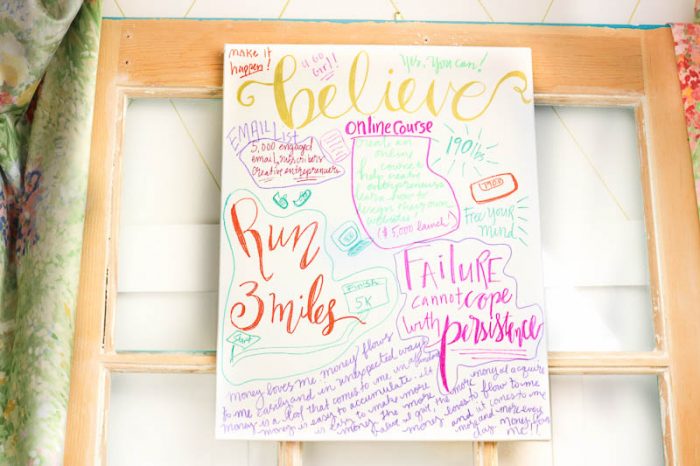 make it
happen!
u go
Girl!!
Yes, You can!
believe
EMAIL List
5,000 engaged
email subscribers
creative entrepreneurs
online course
an
online
course
help creative
entrepreneurs
learn how to
design their own
website!
($5,000 launch)
190 lbs
Free Your
mind
Run
3 miles
Start
Finish
5K
FAILURE
cannot cope
with persistence
money loves me. money flows
to me easily and in unexpected ways
money is a tool that comes to me
money is easy to accumulate. it
is easy to make more
money. the more
money I acquire
the more
money loves to flow to me
and it comes to me
more and more every
day. money
me!!